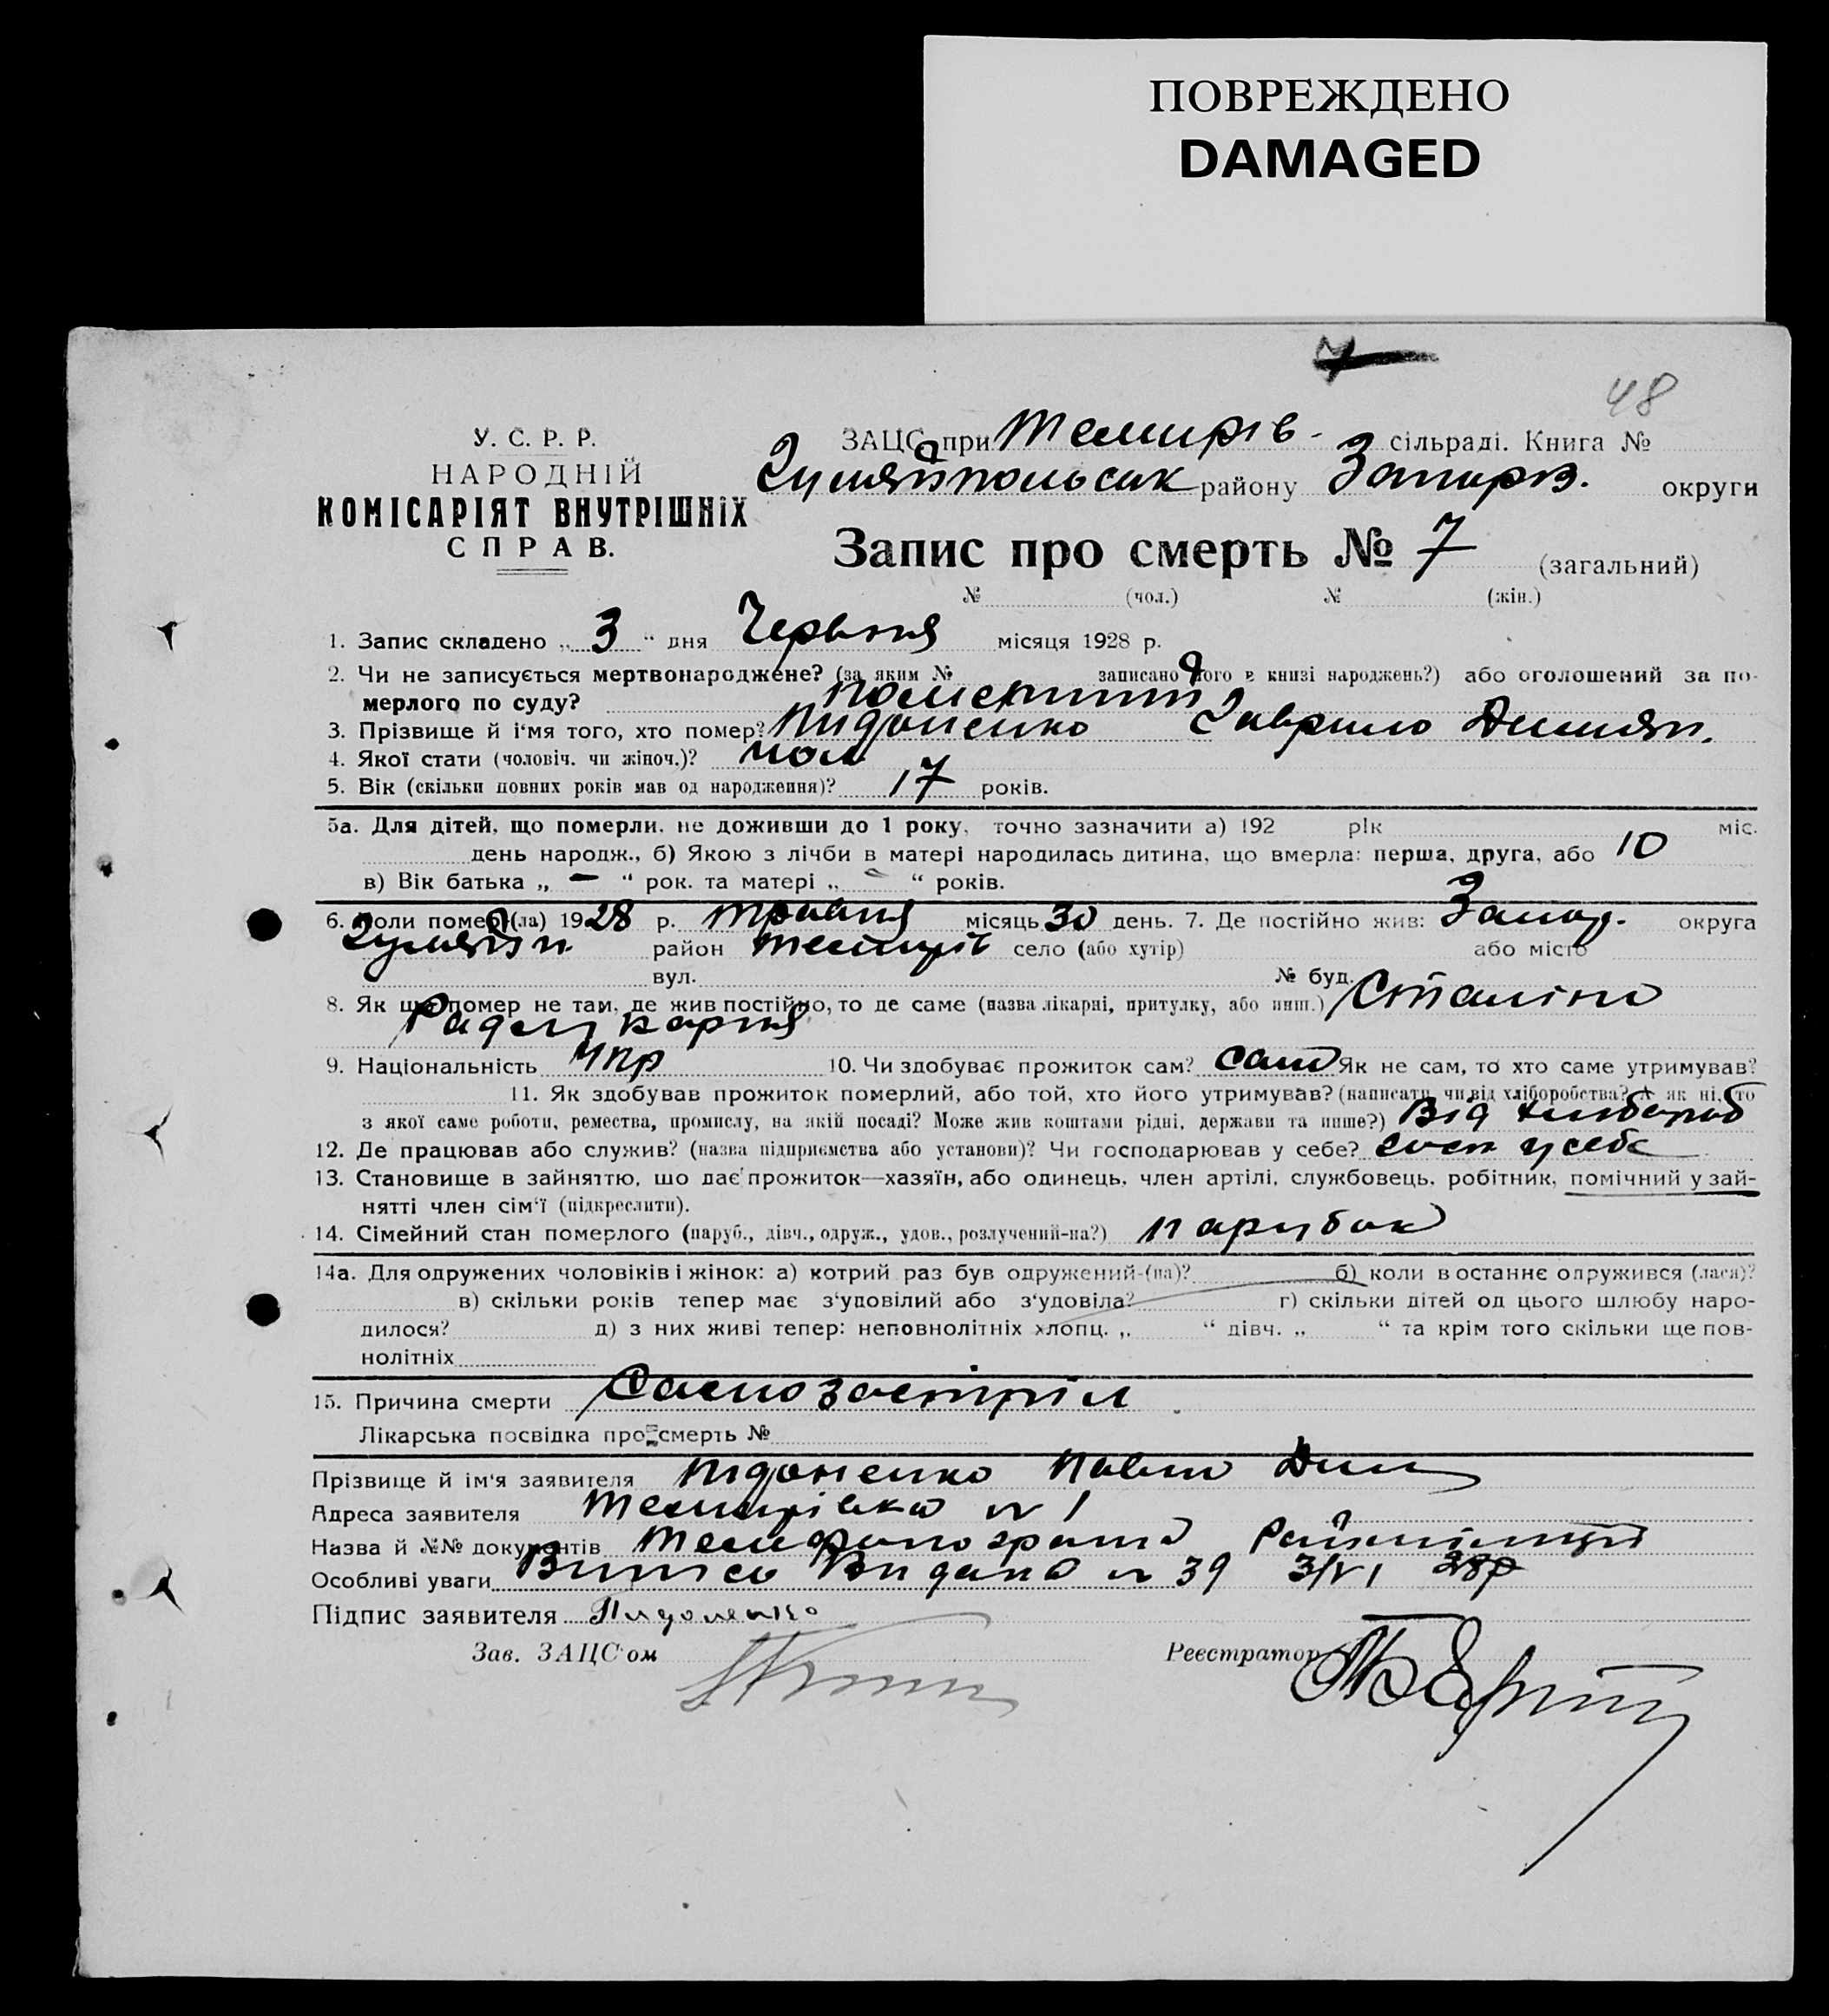 ПОВРЕЖДЕНО
DAMAGED
7
48
У. С. Р. Р.
НАРОДНІЙ
КОМІСАРІЯТ ВНУТРІШНІХ
СПРАВ.
ЗАЦС при Темирів- сільраді. Книга №
Гуляйпольськ району Запоріз. округи
Запис про смерть № 7 (загальний)
№ (чол.) № (жін.)
1. Запис складено „ 3 “ дня Червня місяця 1928 р.
2. Чи не записується мертвонароджене? (за яким № записано його в книзі народжень?) або оголошений за по-
мерлого по суду?
3. Прізвище й і‘мя того, хто помер? Підоненко Гаврило Демян.
4. Якої стати (чоловіч. чи жіноч.)? чол
5. Вік (скільки повних років мав од народження)? 17 років.
5а. Для дітей, що померли, не доживши до 1 року, точно зазначити а) 192 рік міс.
день народж., б) Якою з лічби в матері народилась дитина, що вмерла: перша, друга, або 10
в) Вік батька „ — “ рок. та матері „ “ років.
6. Коли помер (ла) 1928 р. травня місяць 30 день. 7. Де постійно жив: Запор. округа
Гуляйп. район Темирів село (або хутір) або місто
вул. № буд.
8. Як що помер не там, де жив постійно, то де саме (назва лікарні, притулку, або инш.) Сталіно
9. Національність Укр 10. Чи здобуває прожиток сам? сам Як не сам, то хто саме утримував?
11. Як здобував прожиток померлий, або той, хто його утримував? (написати чи від хліборобства? А як ні, то
з якої саме роботи, ремества, промислу, на якій посаді? Може жив коштами рідні, держави та инше?) Від хлібороб
12. Де працював або служив? (назва підприємства або установи)? Чи господарював у себе? госп у себе
13. Становище в зайняттю, що дає прожиток—хазяїн, або одинець, член артілі, службовець, робітник, помічний у зай-
нятті член сім‘ї (підкреслити).
14. Сімейний стан померлого (паруб., дівч., одруж., удов., розлучений-на?) парубок
14а. Для одружених чоловіків і жінок: а) котрий раз був одружений-(на)? б) коли в останнє одружився (лася)?
в) скільки років тепер має з‘удовілий або з‘удовіла? г) скільки дітей од цього шлюбу наро-
дилося? д) з них живі тепер: неповнолітніх хлопц. „ “ дівч. „ “ та крім того скільки ще пов-
нолітніх
15. Причина смерти Самозастріл
Лікарська посвідка про смерть №
Прізвище й ім‘я заявителя Підоненко Павло Дем
Адреса заявителя Темирівка № 1
Назва й №№ документів Телефонограма Райміліції
Особливі уваги Виписъ Видана № 39 3/VI 28р
Підпис заявителя Пидоненко
Зав. ЗАЦС‘ом Реєстратор